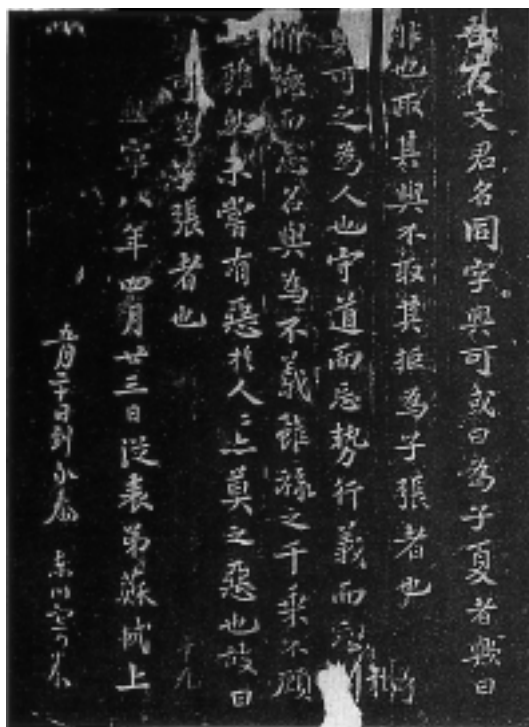 吾友文君名同字與可或曰為子夏者歟曰
非也取其與不取其拒為子張者也
與可之為人也守道而忘勢行義而忘
修德而忘名與為不義雖祿之千乘不顧
雖然未嘗有惡於人人亦莫之惡也故曰
與可為子張者也
熙寧八年四月廿三日從表弟蘇軾上